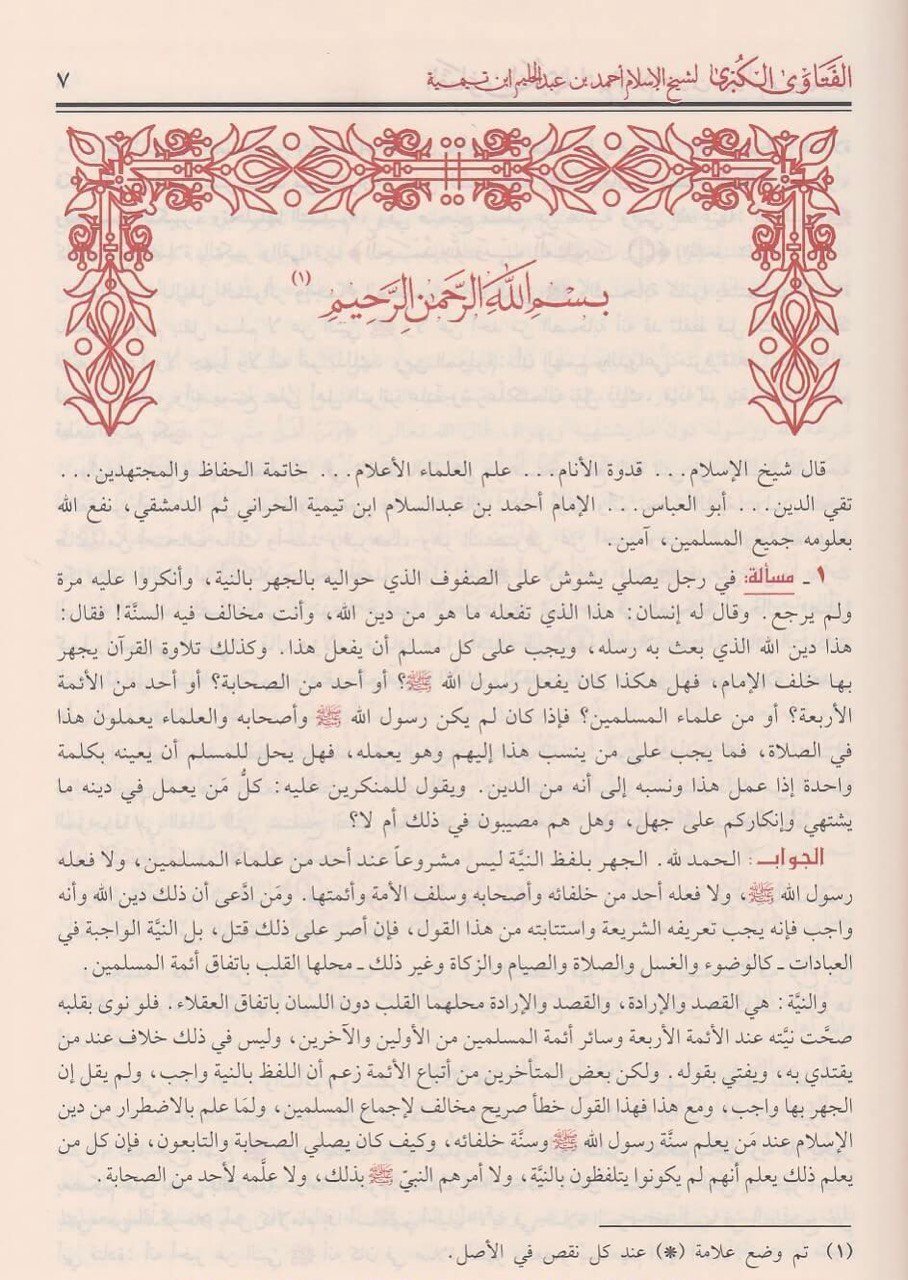 الفتاوى الكبرى لشيخ الإسلام أحمد بن عبد الحليم ابن تيمية ٧
بسم الله الرحمن الرحيم (١)
قال شيخ الإسلام... قدوة الأنام... علم العلماء الأعلام... خاتمة الحفاظ والمجتهدين...
تقي الدين... أبو العباس... الإمام أحمد بن عبدالسلام ابن تيمية الحراني ثم الدمشقي، نفع الله
بعلومه جميع المسلمين، آمين.
١ ـ مسألة: في رجل يصلي يشوش على الصفوف الذي حواليه بالجهر بالنية، وأنكروا عليه مرة
ولم يرجع. وقال له إنسان: هذا الذي تفعله ما هو من دين الله، وأنت مخالف فيه السنَّة! فقال:
هذا دين الله الذي بعث به رسله، ويجب على كل مسلم أن يفعل هذا. وكذلك تلاوة القرآن يجهر
بها خلف الإمام، فهل هكذا كان يفعل رسول الله ﷺ؟ أو أحد من الصحابة؟ أو أحد من الأئمة
الأربعة؟ أو من علماء المسلمين؟ فإذا كان لم يكن رسول الله ﷺ وأصحابه والعلماء يعملون هذا
في الصلاة، فما يجب على من ينسب هذا إليهم وهو يعمله، فهل يحل للمسلم أن يعينه بكلمة
واحدة إذا عمل هذا ونسبه إلى أنه من الدين. ويقول للمنكرين عليه: كلُّ مَن يعمل في دينه ما
يشتهي وإنكاركم على جهل، وهل هم مصيبون في ذلك أم لا؟
الجواب: الحمد لله. الجهر بلفظ النيَّة ليس مشروعاً عند أحد من علماء المسلمين، ولا فعله
رسول الله ﷺ، ولا فعله أحد من خلفائه وأصحابه وسلف الأمة وأئمتها. ومَن ادَّعى أن ذلك دين الله وأنه
واجب فإنه يجب تعريفه الشريعة واستتابته من هذا القول، فإن أصر على ذلك قتل، بل النيَّة الواجبة في
العبادات ـ كالوضوء والغسل والصلاة والصيام والزكاة وغير ذلك ـ محلها القلب باتفاق أئمة المسلمين.
والنيَّة: هي القصد والإرادة، والقصد والإرادة محلهما القلب دون اللسان باتفاق العقلاء. فلو نوى بقلبه
صحَّت نيَّته عند الأئمة الأربعة وسائر أئمة المسلمين من الأولين والآخرين، وليس في ذلك خلاف عند من
يقتدي به، ويفتي بقوله. ولكن بعض المتأخرين من أتباع الأئمة زعم أن اللفظ بالنية واجب، ولم يقل إن
الجهر بها واجب، ومع هذا فهذا القول خطأ صريح مخالف لإجماع المسلمين، ولمَا علم بالاضطرار من دين
الإسلام عند مَن يعلم سنَّة رسول الله ﷺ وسنَّة خلفائه، وكيف كان يصلي الصحابة والتابعون، فإن كل من
يعلم ذلك يعلم أنهم لم يكونوا يتلفظون بالنيَّة، ولا أمرهم النبيّ ﷺ بذلك، ولا علَّمه لأحد من الصحابة.
(١) تم وضع علامة (*) عند كل نقص في الأصل.